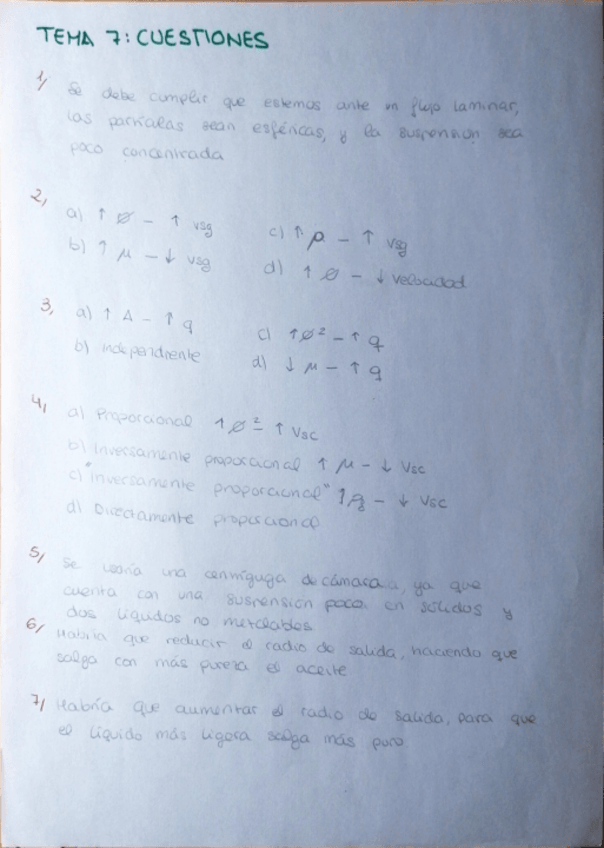 TEMA 7: CUESTIONES
1, Se debe cumplir que estemos ante un flujo laminar,
las partículas sean esféricas, y la suspensión sea
poco concentrada
2,
a) ↑ ø - ↑ vsg
c) ↑ ρ - ↑ vsg
b) ↑ μ - ↓ vsg
d) ↑ ø - ↓ velocidad
3, a) ↑ A - ↑ q
c) ↑ ø² - ↑ q
b) independiente
d) ↓ μ - ↑ q
4, a) Proporcional ↑ ø² - ↑ Vsc
b) Inversamente proporcional ↑ μ - ↓ Vsc
c) "Inversamente proporcional" ↑ - ↓ Vsc
d) Directamente proporcional
5, Se usaría una de ya que
cuenta con una suspensión poco en sólidos y
dos líquidos no mezclables.
6, Habría que reducir el radio de salida, haciendo que
salga con más pureza el aceite
7, Habría que aumentar el radio de salida, para que
el líquido más ligera salga más puro